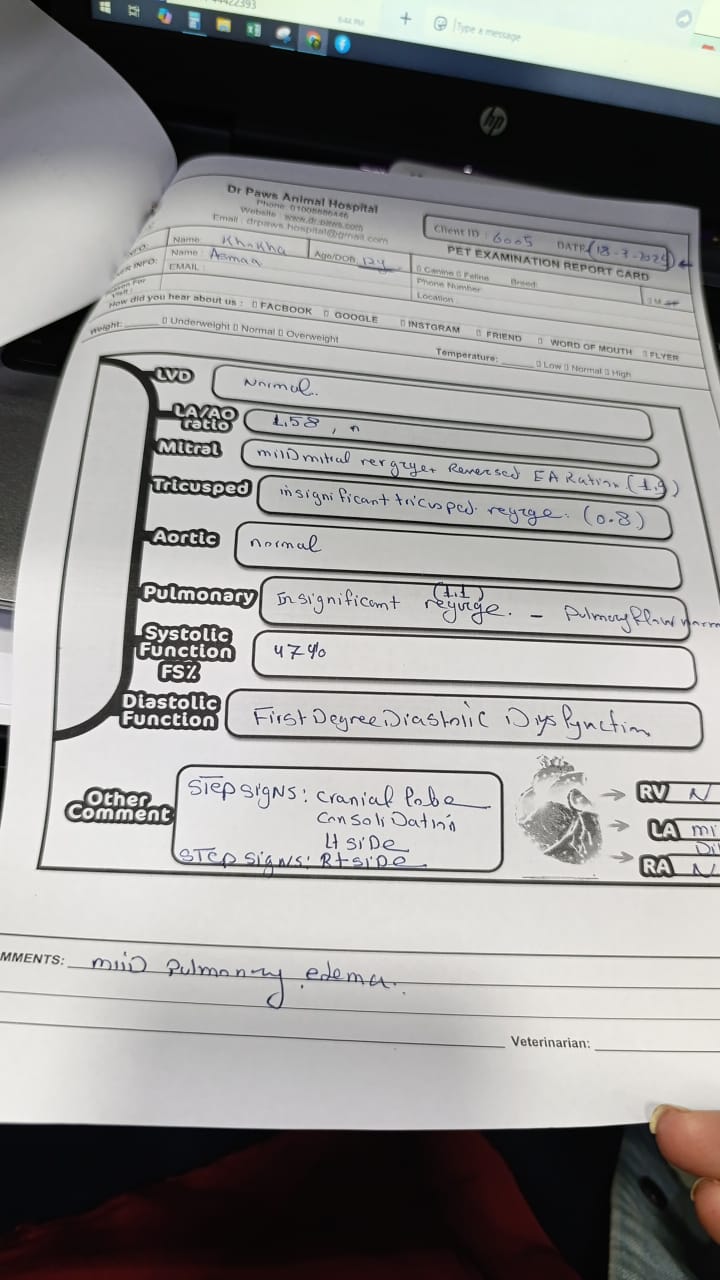 6:44 PM
Type a message
hp
Dr Paws Animal Hospital
Phone: 01008686446
Website: www.dr.paws.com
Email: drpaws.hospital@gmail.com
Client ID: 6005 DATE (18-3-2024)
PET EXAMINATION REPORT CARD
Name: Khokha Age/DOB: 12y Canine Feline Breed:
INFO: Name: Asmaa Phone Number
EMAIL Location
How did you hear about us : FACBOOK GOOGLE INSTGRAM FRIEND WORD OF MOUTH FLYER
Weight: Underweight Normal Overweight Temperature: Low Normal High
LVD Normal.
LA/AO ratio 1.58, n
Mitral milD mitral regurge, Reversed EA Ration (1.9)
Tricusped insignificant tricusped. regurge. (0.8)
Aortic normal
Pulmonary Insignificant regurge. (1.1) - Pulmonary flow norm
Systolic Function FS% 47%
Diastolic Function First Degree Diastolic Dysfunction
Other Comment STEP SIGNS: cranial lobe
consoliDation
Lt SiDe
STEP SIGNS: Rt side
RV N
LA mi
Di
RA N
MMENTS: milD Pulmonary edema.
Veterinarian: